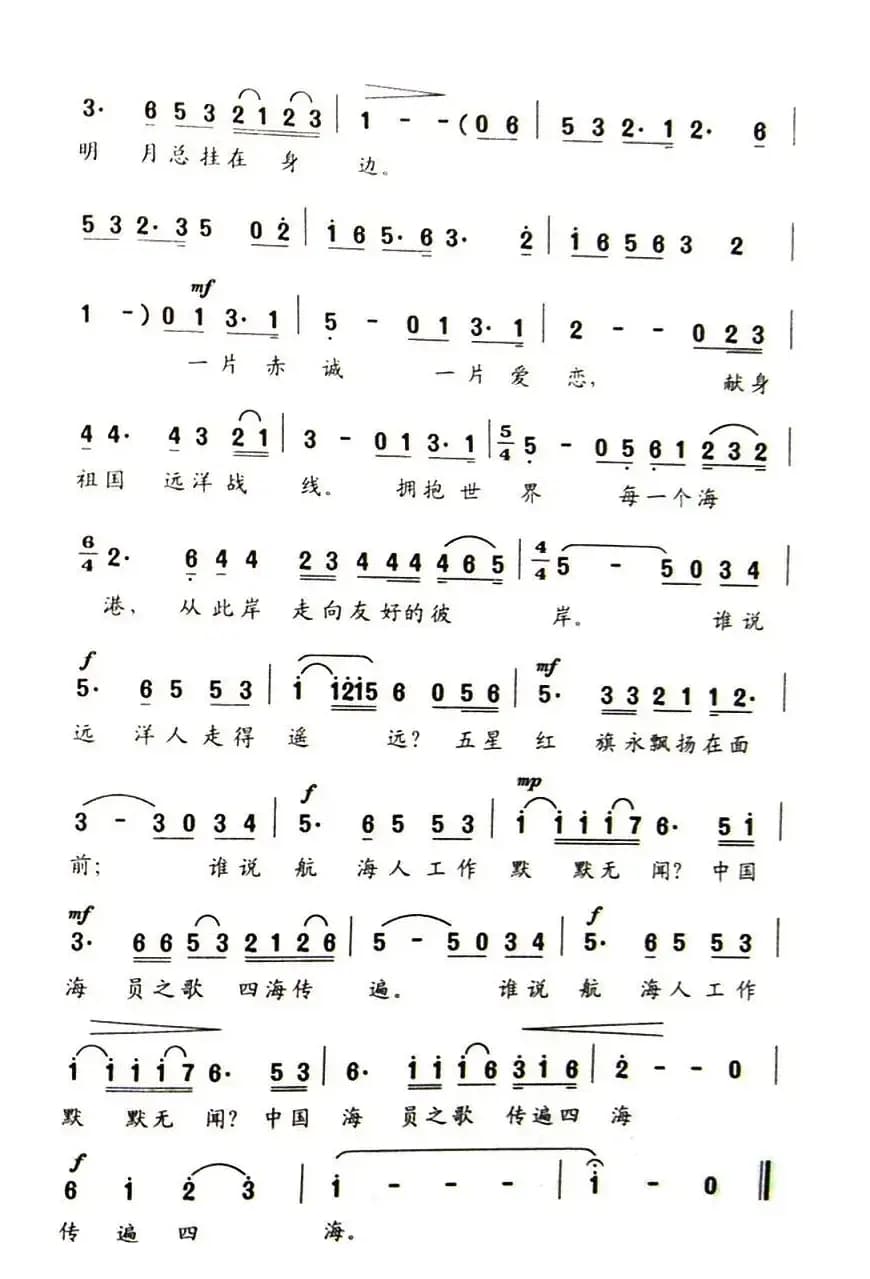 3· 6 5 3 2 1 2 3 | 1 - - (0 6 | 5 3 2· 1 2· 6 |
明 月总挂在 身 边。
5 3 2· 3 5 0 2̇ | 1̇ 6 5· 6 3· 2̇ | 1̇ 6 5 6 3 2 |
mf
1 -) 0 1 3· 1 | 5̣ - 0 1 3· 1 | 2 - - 0 2 3 |
一片赤 诚 一片爱 恋, 献身
4 4· 4 3 2 1 | 3 - 0 1 3· 1 | 5/4 5̣ - 0 5̣ 6̣ 1 2 3 2 |
祖国 远洋战 线。 拥抱世 界 每一个海
6/4 2· 6̣ 4 4 2 3 4 4 4 4 6 5 | 4/4 5 - 5 0 3 4 |
港, 从此岸 走向友好的彼 岸。 谁说
f mf
5· 6 5 5 3 | 1̇ 1̇ 2̇ 1̇ 5 6 0 5 6 | 5· 3 3 2 1 1 1 2· |
远 洋人走得 遥 远? 五星 红 旗永飘扬在面
f mp
3 - 3 0 3 4 | 5· 6 5 5 3 | 1̇ 1̇ 1̇ 1̇ 7 6· 5 1̇ |
前; 谁说 航 海人工作 默 默无 闻? 中国
mf f
3· 6 6 5 3 2 1 2 6 | 5 - 5 0 3 4 | 5· 6 5 5 3 |
海 员之歌 四海传 遍。 谁说 航 海人工作
1̇ 1̇ 1̇ 1̇ 7 6· 5 3 | 6· 1̇ 1̇ 1̇ 6 3̇ 1̇ 6 | 2̇ - - 0 |
默 默无 闻? 中国 海 员之歌 传遍四 海
f
6 1̇ 2̇ 3̇ | 1̇ - - - | 1̇ - 0 ‖
传 遍 四 海。